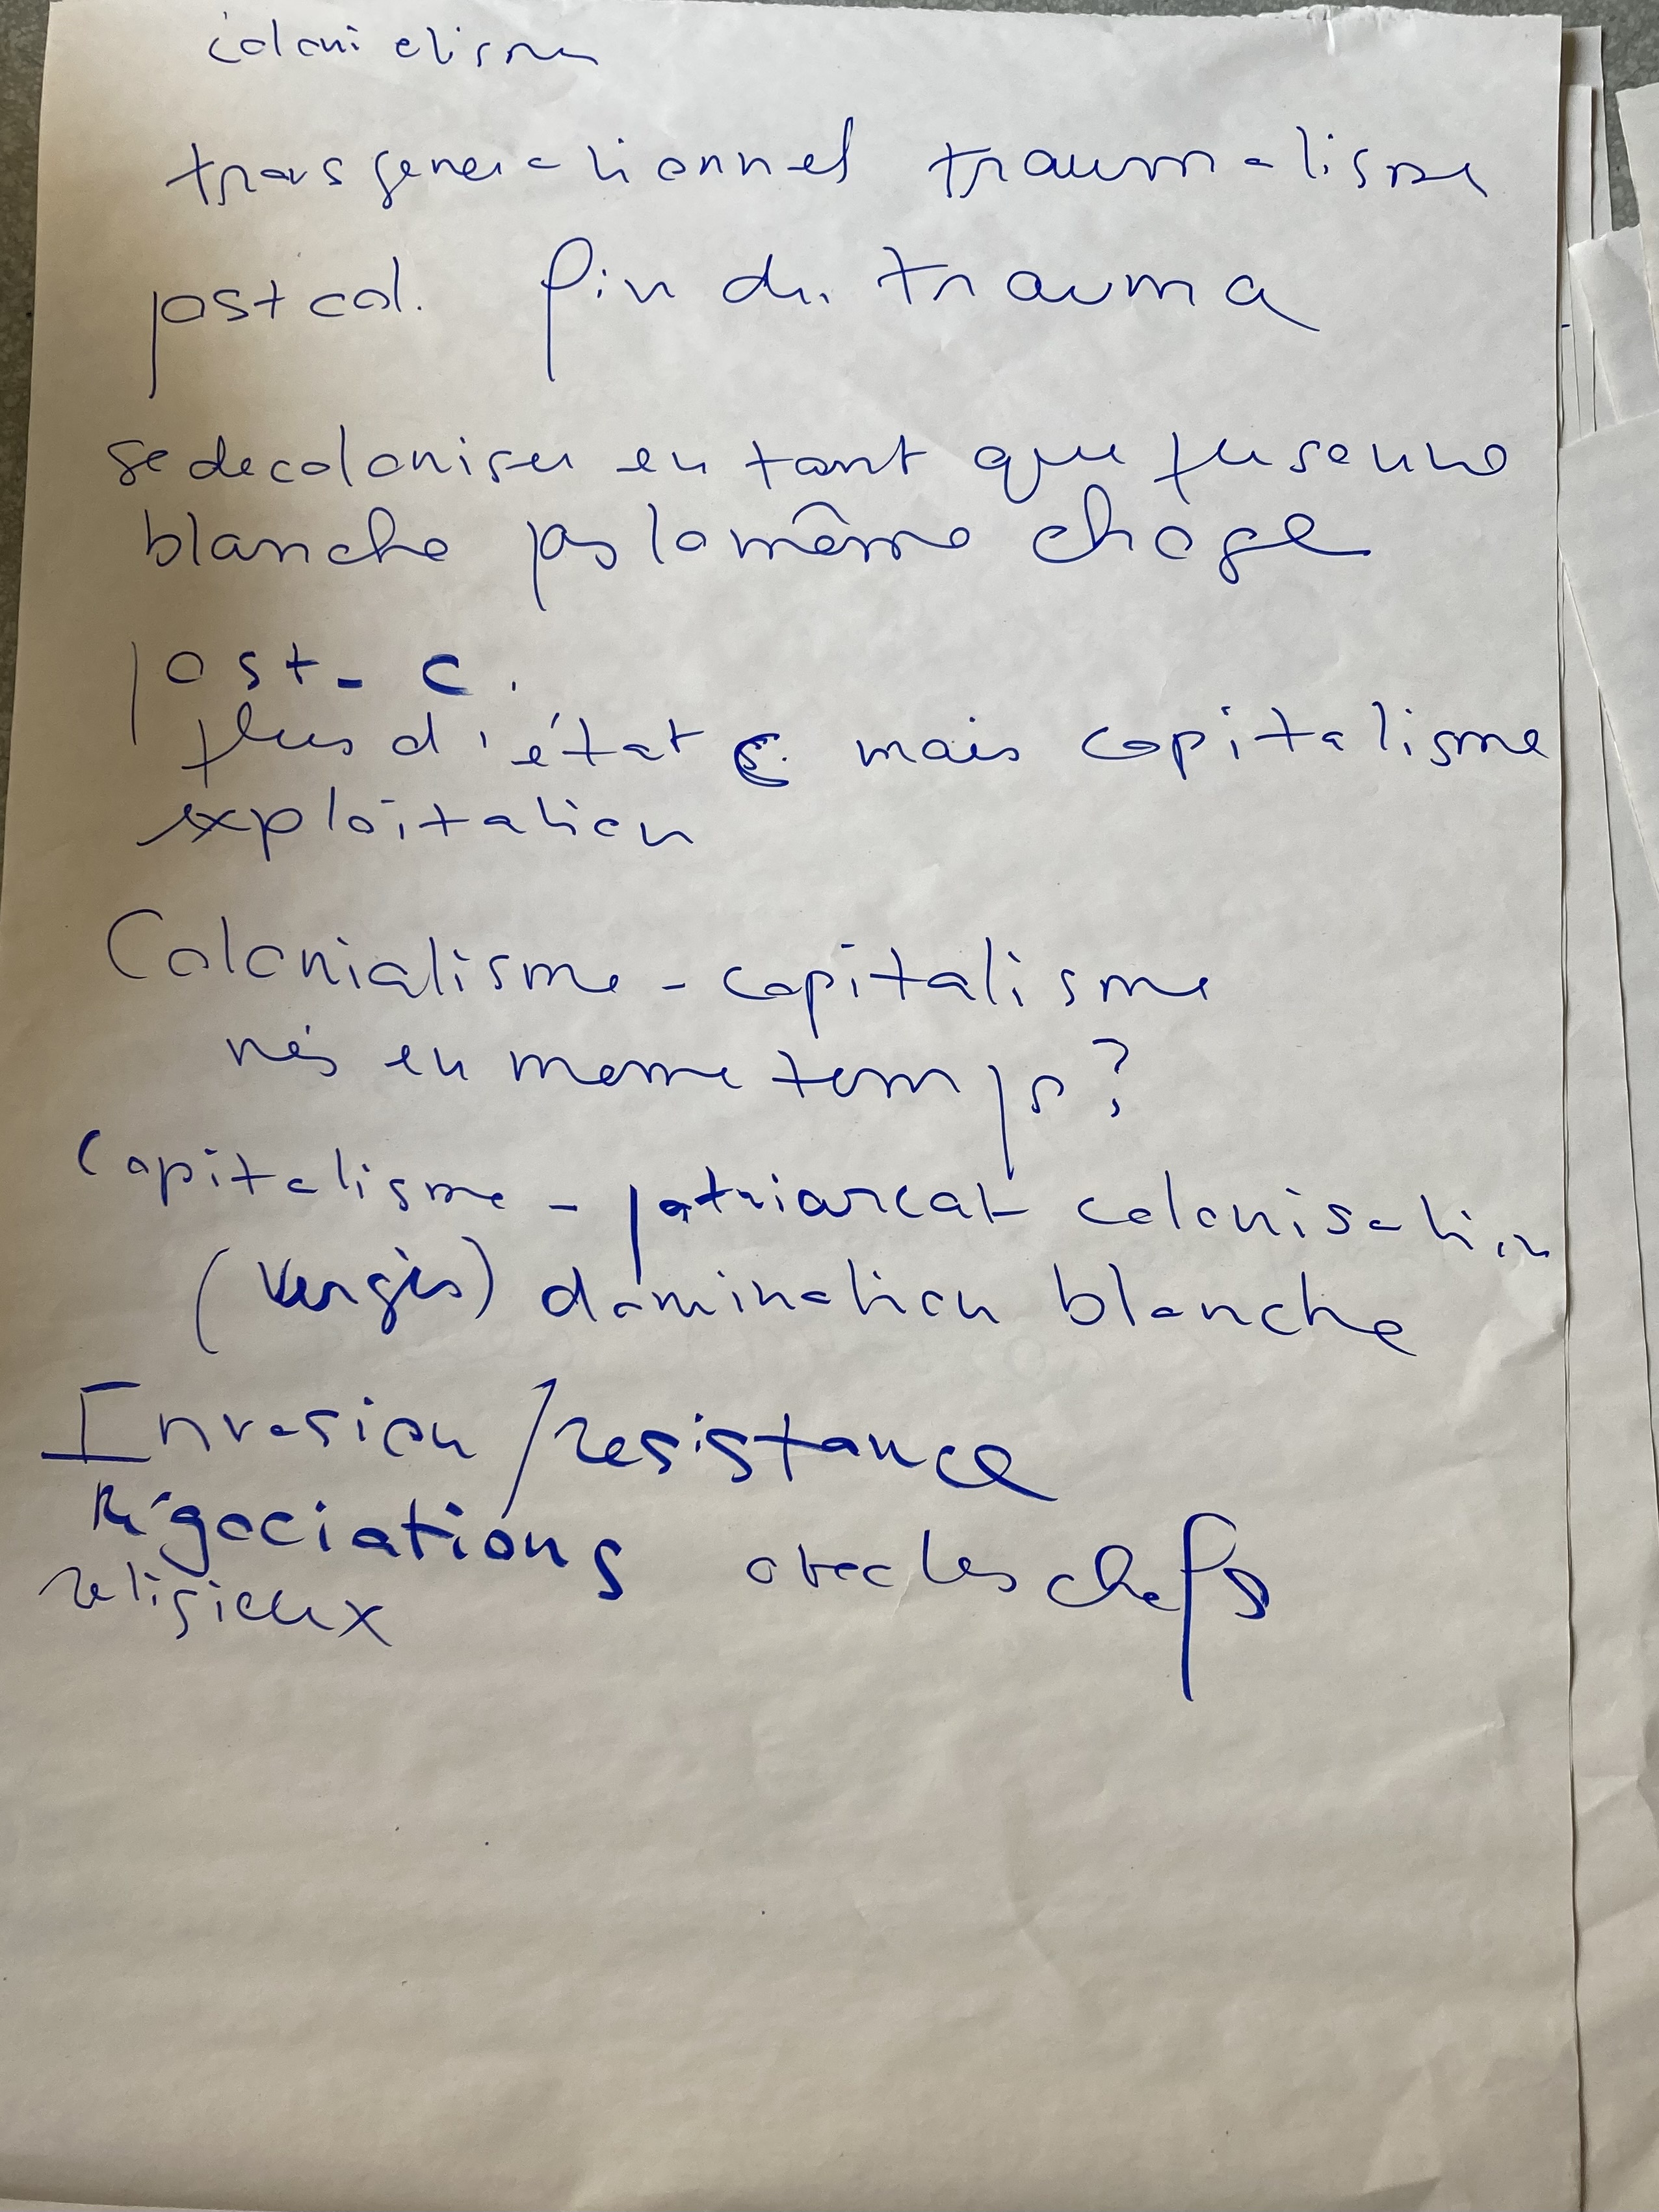 colonialisme
transgenerationnel traumatisme
postcol. fin du trauma
se decoloniser en tant que personne
blanche pas la même chose
post-c.
plus d'état c. mais capitalisme
exploitation
Colonialisme - capitalisme
nés en meme temps?
Capitalisme - patriarcat colonisation
(Vergès) domination blanche
Invasion / resistance
Négociations avec les chefs
religieux